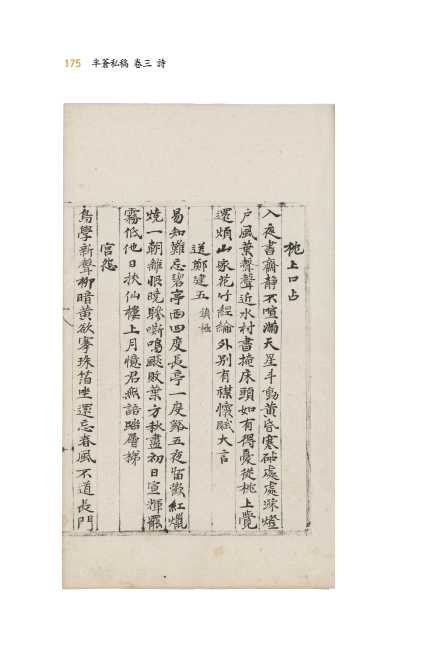 175 半蒼私稿 卷三 詩
枕上口占
入夜書齋靜不喧滿天星斗動黃昏寒砧處處深燈
戶風葉聲聲近水村書掩床頭如有得憂從枕上覺
還煩山家花竹經綸外別有襟懷賦大言
送鄭建五 鎮極
易知難忘碧亭西四度長亭一度谿五夜留歡紅燭
燒一朝離恨曉膠嘶鳴颷敗葉方秋盡初日宣輝罷
霧低他日扶仙樓上月憶君無語踏層梯
宮怨
鳥學新聲柳暗黃欲搴珠箔坐還忘春風不道長門